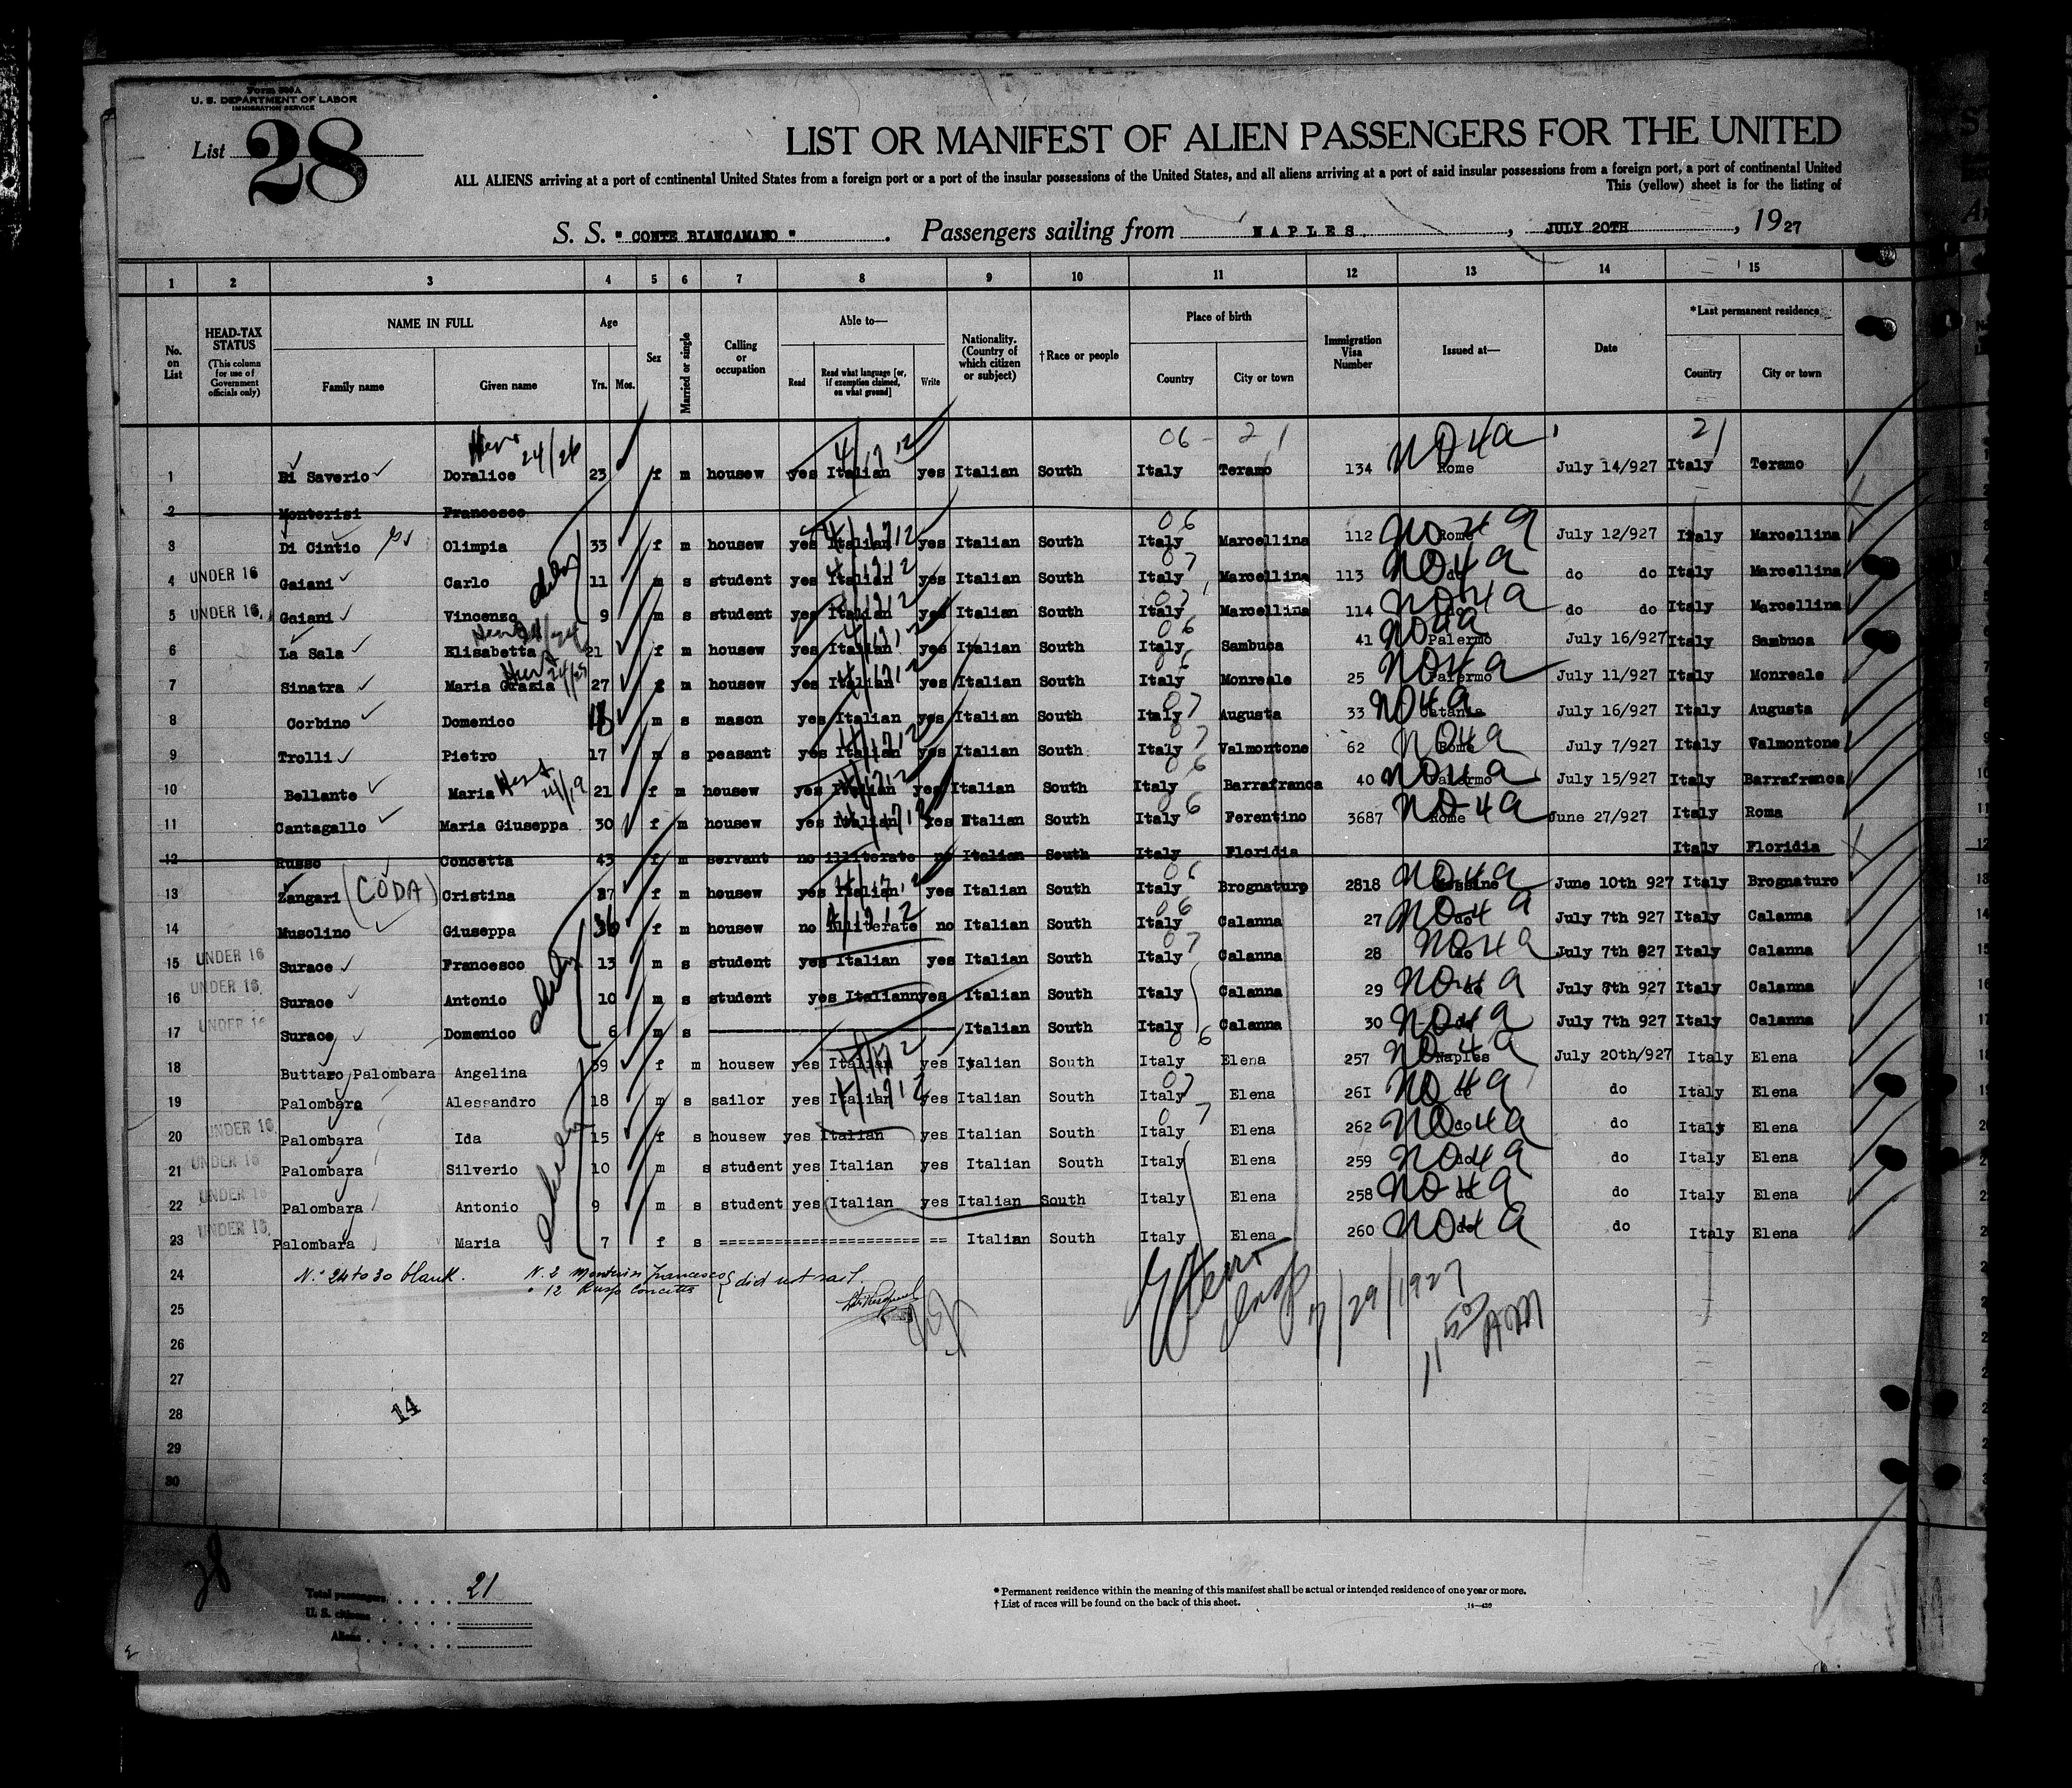 Form 500A
U. S. DEPARTMENT OF LABOR
IMMIGRATION SERVICE
List 28
LIST OR MANIFEST OF ALIEN PASSENGERS FOR THE UNITED
ALL ALIENS arriving at a port of continental United States from a foreign port or a port of the insular possessions of the United States, and all aliens arriving at a port of said insular possessions from a foreign port, a port of continental United
This (yellow) sheet is for the listing of
S. S. " CONTE BIANCAMANO " . Passengers sailing from NAPLES. , JULY 20TH , 1927
1 2 3 4 5 6 7 8 9 10 11 12 13 14 15
No. on List
HEAD-TAX STATUS (This column for use of Government officials only)
NAME IN FULL Family name Given name
Age Yrs. Mos.
Sex
Married or single
Calling or occupation
Able to— Read Read what language [or, if exemption claimed, on what ground] Write
Nationality. (Country of which citizen or subject)
†Race or people
Place of birth Country City or town
Immigration Visa Number
Issued at—
Date
*Last permanent residence Country City or town
06 - 21 NO 4a 21
24/26
1 Di Saverio Doralice 23 f m housew yes Italian yes Italian South Italy Teramo 134 Rome July 14/927 Italy Teramo
2 Monterisi Francesco
3 Di Cintio Olimpia 33 f m housew yes Italian yes Italian South Italy Marcellina 112 Rome July 12/927 Italy Marcellina
4 UNDER 16 Gaiani Carlo 11 m s student yes Italian yes Italian South Italy Marcellina 113 do do do Italy Marcellina
5 UNDER 16 Gaiani Vincenzo 9 m s student yes Italian yes Italian South Italy Marcellina 114 do do do Italy Marcellina
6 La Sala Elisabetta 21 f m housew yes Italian yes Italian South Italy Sambuca 41 Palermo July 16/927 Italy Sambuca
7 Sinatra Maria Grazia 27 f m housew yes Italian yes Italian South Italy Monreale 25 Palermo July 11/927 Italy Monreale
8 Corbino Domenico m s mason yes Italian yes Italian South Italy Augusta 33 Catania July 16/927 Italy Augusta
9 Trolli Pietro 17 m s peasant yes Italian yes Italian South Italy Valmontone 62 Rome July 7/927 Italy Valmontone
10 Bellante Maria 24/19 21 f m housew yes Italian yes Italian South Italy Barrafranca 40 Palermo July 15/927 Italy Barrafranca
11 Cantagallo Maria Giuseppa 30 f m housew yes Italian yes Italian South Italy Ferentino 3687 Rome June 27/927 Italy Roma
12 Russo Concetta 43 f m servant no illiterate no Italian South Italy Floridia Italy Floridia
13 Zangari (CODA) Cristina 27 f m housew yes Italian yes Italian South Italy Brognaturo 2818 Messina June 10th 927 Italy Brognaturo
14 Musolino Giuseppa 36 f m housew no illiterate no Italian South Italy Calanna 27 do July 7th 927 Italy Calanna
15 UNDER 16 Surace Francesco 13 m s student yes Italian yes Italian South Italy Calanna 28 do July 7th 927 Italy Calanna
16 UNDER 16. Surace Antonio 10 m s student yes Italian yes Italian South Italy Calanna 29 do July 7th 927 Italy Calanna
17 UNDER 16 Surace Domenico 6 m s Italian South Italy Calanna 30 do July 7th 927 Italy Calanna
18 Buttaro Palombara Angelina 39 f m housew yes Italian yes Italian South Italy Elena 257 Naples July 20th/927 Italy Elena
19 Palombara Alessandro 18 m s sailor yes Italian yes Italian South Italy Elena 261 do do Italy Elena
20 UNDER 16. Palombara Ida 15 f s housew yes Italian yes Italian South Italy Elena 262 do do Italy Elena
21 UNDER 16 Palombara Silverio 10 m s student yes Italian yes Italian South Italy Elena 259 do do Italy Elena
22 UNDER 16 Palombara Antonio 9 m s student yes Italian yes Italian South Italy Elena 258 do do Italy Elena
23 UNDER 16. Palombara Maria 7 f s ====================== == Italian South Italy Elena 260 do do Italy Elena
24 N.° 24 to 30 blank. N. 2 Monterisi Francesco } did not sail.
" 12 Russo Concetta
25
7/29/1927
26
11 50 AM
27
28
14
29
30
28
Total passengers 21
U. S. citizens
Aliens
* Permanent residence within the meaning of this manifest shall be actual or intended residence of one year or more.
† List of races will be found on the back of this sheet.
14—430